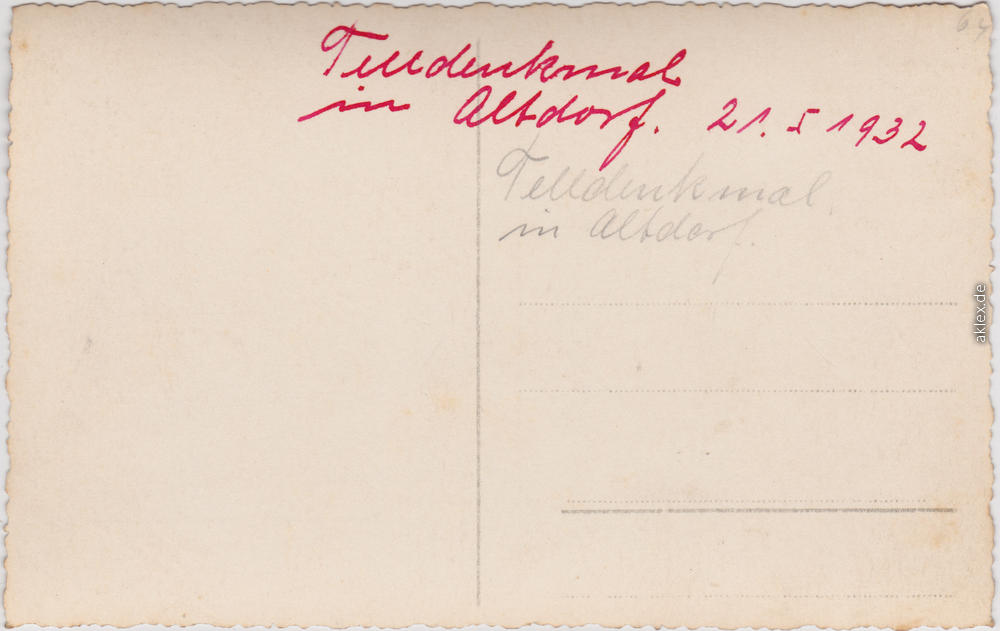 64
Telldenkmal
in Altdorf. 21. 5 1932
Telldenkmal
in Altdorf.
aklex.de